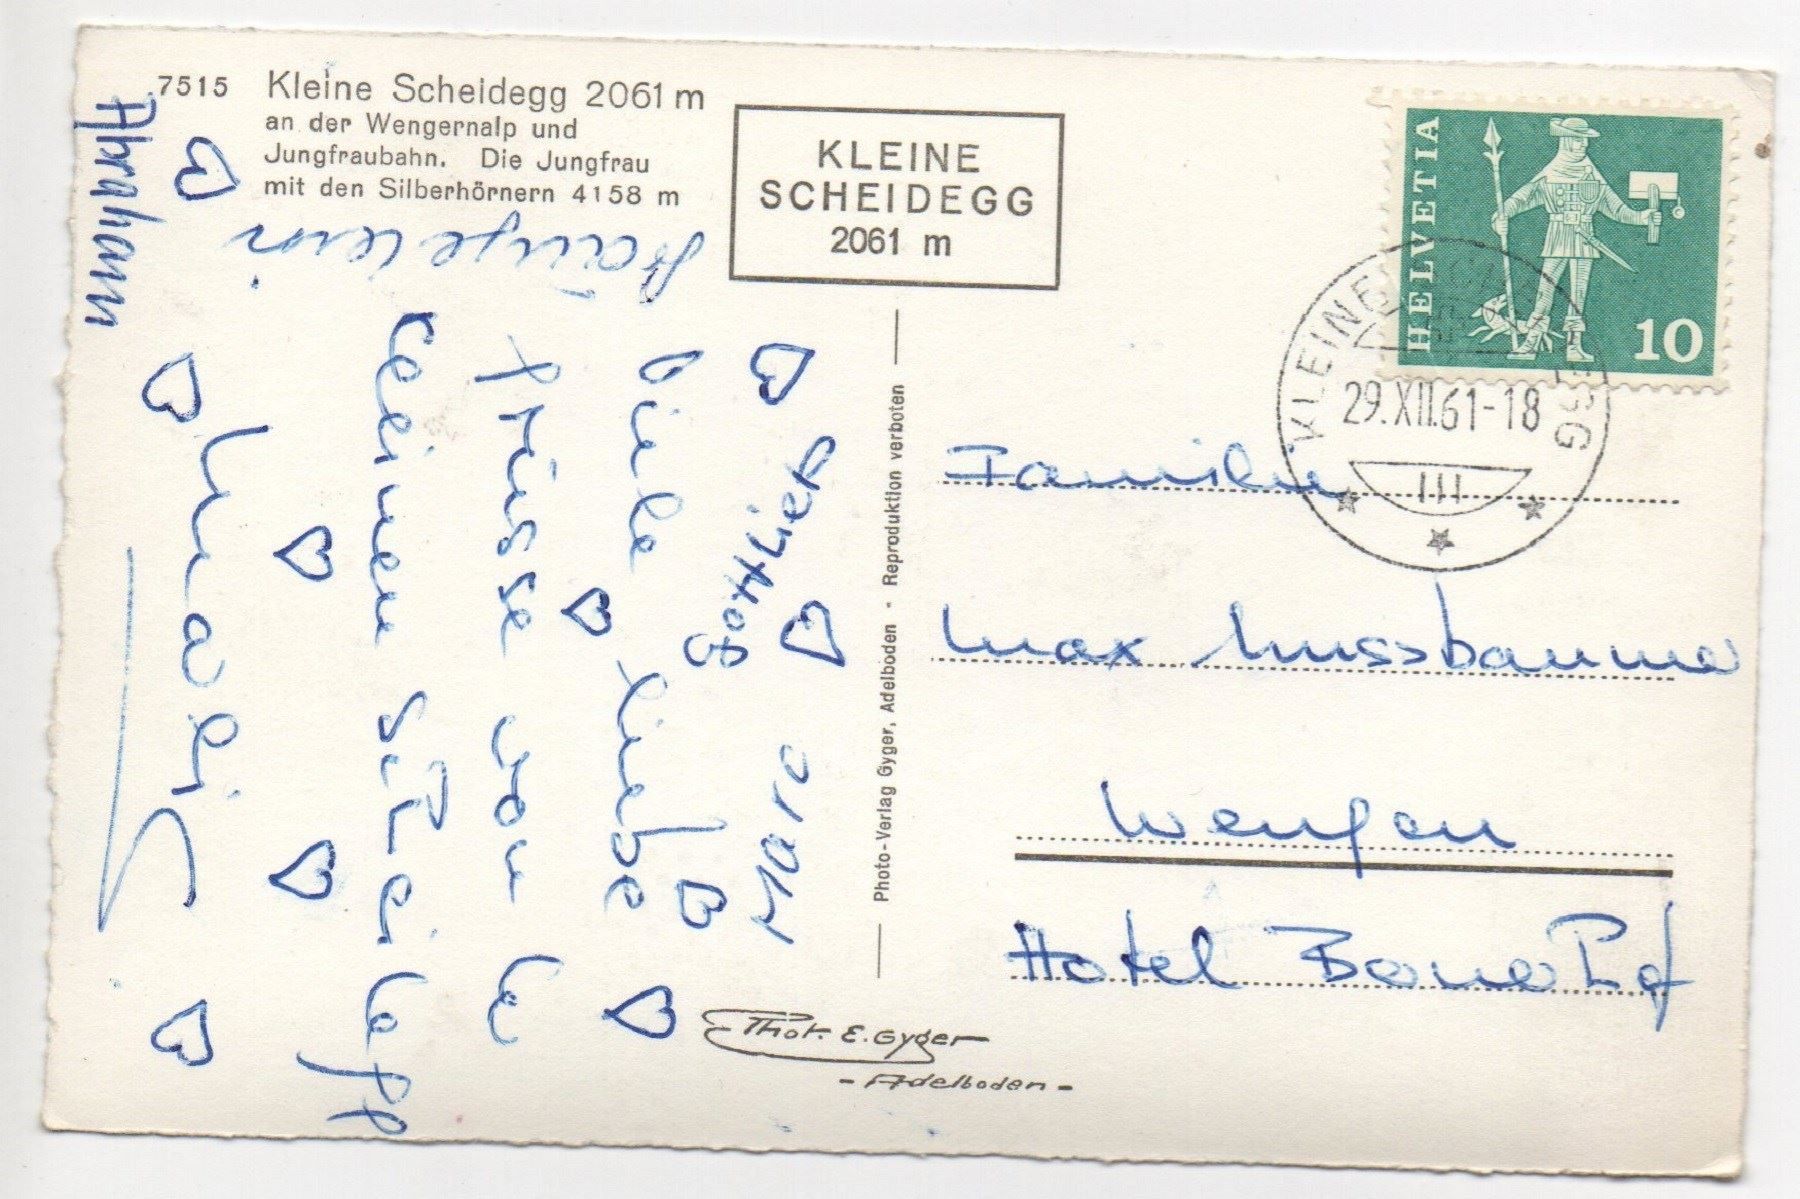 7515 Kleine Scheidegg 2061 m
an der Wengernalp und
Jungfraubahn. Die Jungfrau
mit den Silberhörnern 4158 m
KLEINE
SCHEIDEGG
2061 m
HELVETIA
10
KLEINE SCHEIDEGG
29.XII.61-18
Abraham
Marc
Gottlieb
Viele liebe
Grüsse von
Familie
Max Nussbaumer
Wengen
Hotel
Photo-Verlag Gyger, Adelboden - Reproduktion verboten
Phot. E. Gyger
- Adelboden -